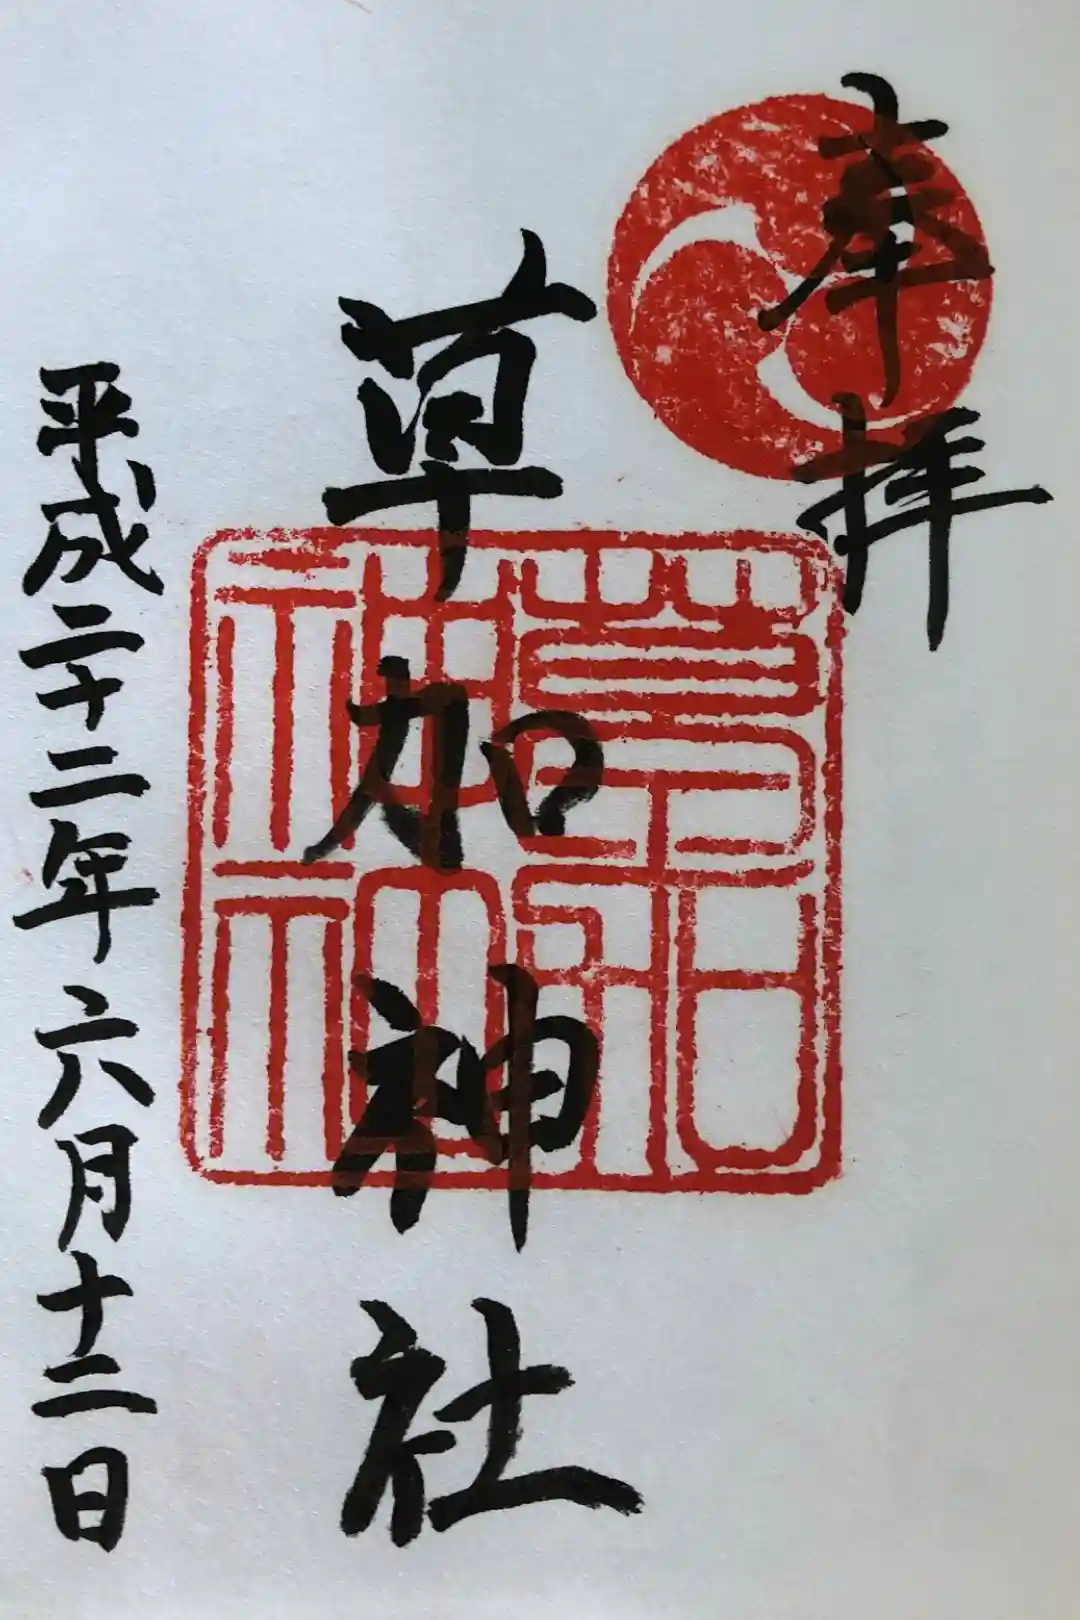 奉拝
草加神社
平成二十二年六月十二日
草加神社